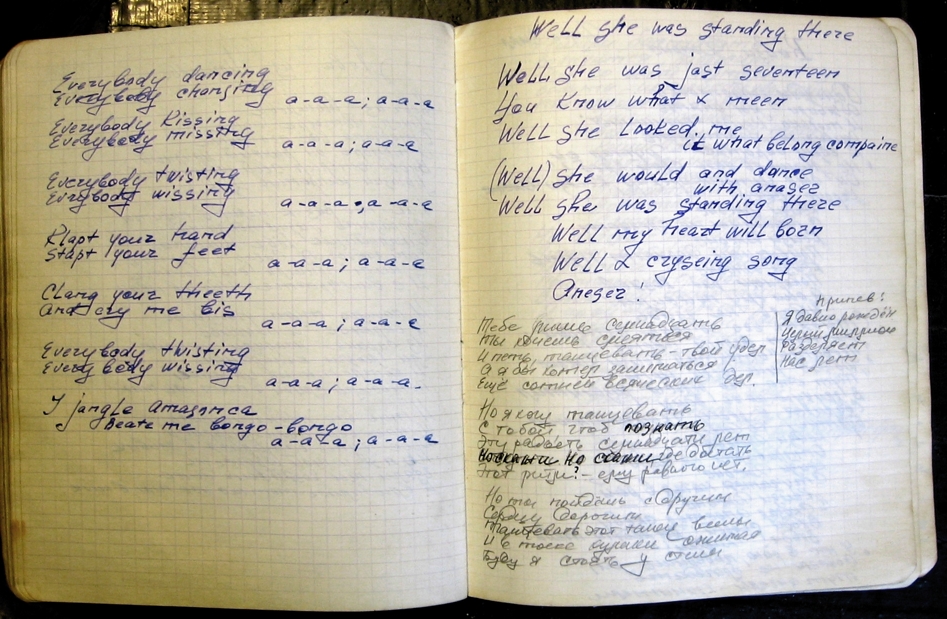 Everybody dancing
Everybody changing a-a-a; a-a-a
Everybody kissing
Everybody missing a-a-a; a-a-a
Everybody twisting
Everybody wissing a-a-a; a-a-a
Klapt your hand
Stapt your feet a-a-a; a-a-a
Clang your theeth
And cry me bis a-a-a; a-a-a
Everybody twisting
Everybody wissing a-a-a; a-a-a.
jangle amasonca
Beate me bongo-bongo
a-a-a; a-a-a
Well she was standing there
Well she was jast seventeen
You Know what meen
Well she Looked me
it what belong compaine
(Well) she would and dance
with anager
Well she was standing there
Well my heart will born
Well cryseing song
Anager!
Тебе лишь семнадцать
Ты хочешь смеяться
И петь, танцевать - твой удел
А я бы хотел
Ещё сотней всяческих дел.
Припев:
Я давно рождён
Разделяет
Нас лет
Но я хочу танцевать
С тобой, чтоб познать
Эту радость семнадцати лет
Но где достать
Этот ритм? - ему равного нет.
Но ты пойдёшь с другим
Танцевать этот танец весны
И в тоске
Буду я стоять у стены